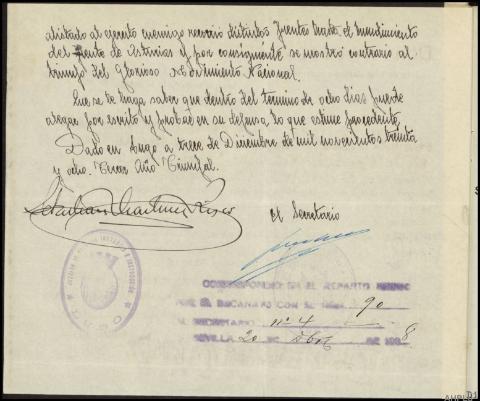 alistado al ejercito enemigo recorrió distintos frentes hasta el hundimiento
del frente de Asturias y por consiguiente se mostró contrario al
triunfo del Glorioso Movimiento Nacional.
Que se le haga saber que dentro del termino de ocho dias puede
alegar por escrito y probar en su defensa lo que estime procedente.
Dado en Lugo a trece de Diciembre de mil novecientos treinta
y ocho. Tercer Año Triunfal.
El Secretario
CORRESPONDIO EN EL REPARTO
POR EL DECANATO CON EL 90
AL SECRETARIO nº 4
SEVILLA 20 DE DE 193 8